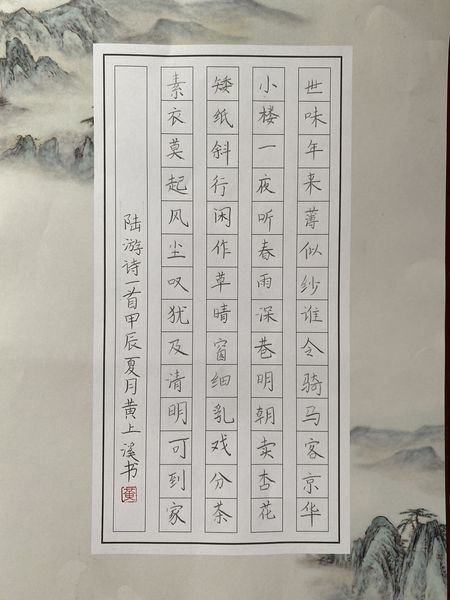 世味年来薄似纱谁令骑马客京华
小楼一夜听春雨深巷明朝卖杏花
矮纸斜行闲作草晴窗细乳戏分茶
素衣莫起风尘叹犹及清明可到家
陆游诗一首甲辰夏月黄上溪书
黄